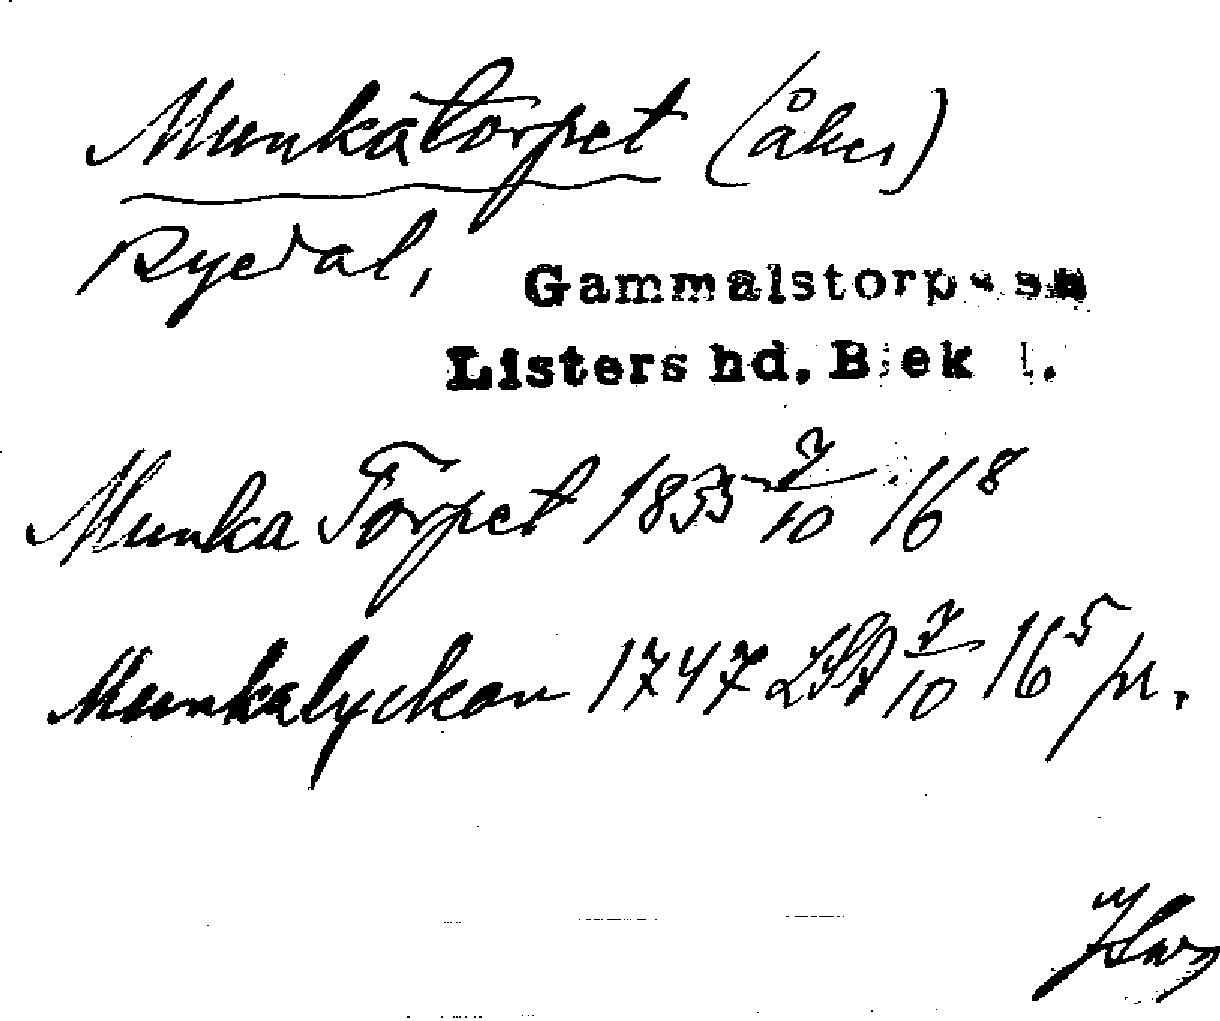 Munkatorpet (åker)
Ryedal,
Gammalstorps sn
Listers hd. Blek l.
Munka Torpet 1835 7/10 16⁸
Munkalyckan 1747 LSA 7/10 16⁵ pr.